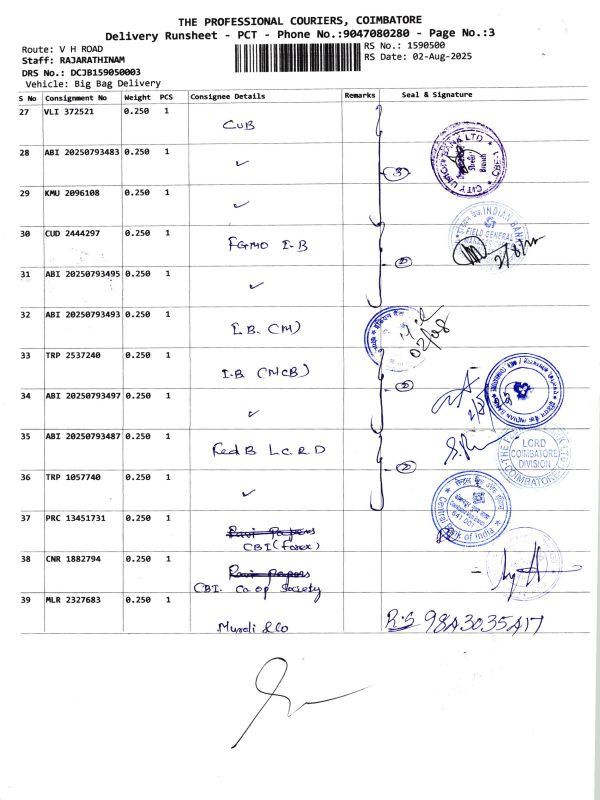 THE PROFESSIONAL COURIERS, COIMBATORE
Delivery Runsheet - PCT - Phone No.:9047080280 - Page No.:3
Route: V H ROAD
RS No.: 1590500
Staff: RAJARATHINAM
RS Date: 02-Aug-2025
DRS No.: DCJB159050003
Vehicle: Big Bag Delivery
S No Consignment No Weight PCS Consignee Details Remarks Seal & Signature
27 VLI 372521 0.250 1
CUB
28 ABI 20250793483 0.250 1
✓
3
CITY UNION BANK LTD
29 KMU 2096108 0.250 1
✓
30 CUD 2444297 0.250 1
FGMO I-B
INDIAN BANK
FIELD GENERAL
2
31 ABI 20250793495 0.250 1
✓
32 ABI 20250793493 0.250 1
I.B. (M)
02/08
33 TRP 2537240 0.250 1
I-B (MCB)
2
34 ABI 20250793497 0.250 1
✓
35 ABI 20250793487 0.250 1
Red B L.C.R.D
LCRD
COIMBATORE
DIVISION
COIMBATORE
2
36 TRP 1057740 0.250 1
✓
641 001
Central Bank of India
37 PRC 13451731 0.250 1
Ravi Papers
CBI (forex)
38 CNR 1882794 0.250 1
Ravi Papers
CBI. Co op Society
39 MLR 2327683 0.250 1
Murali & Co